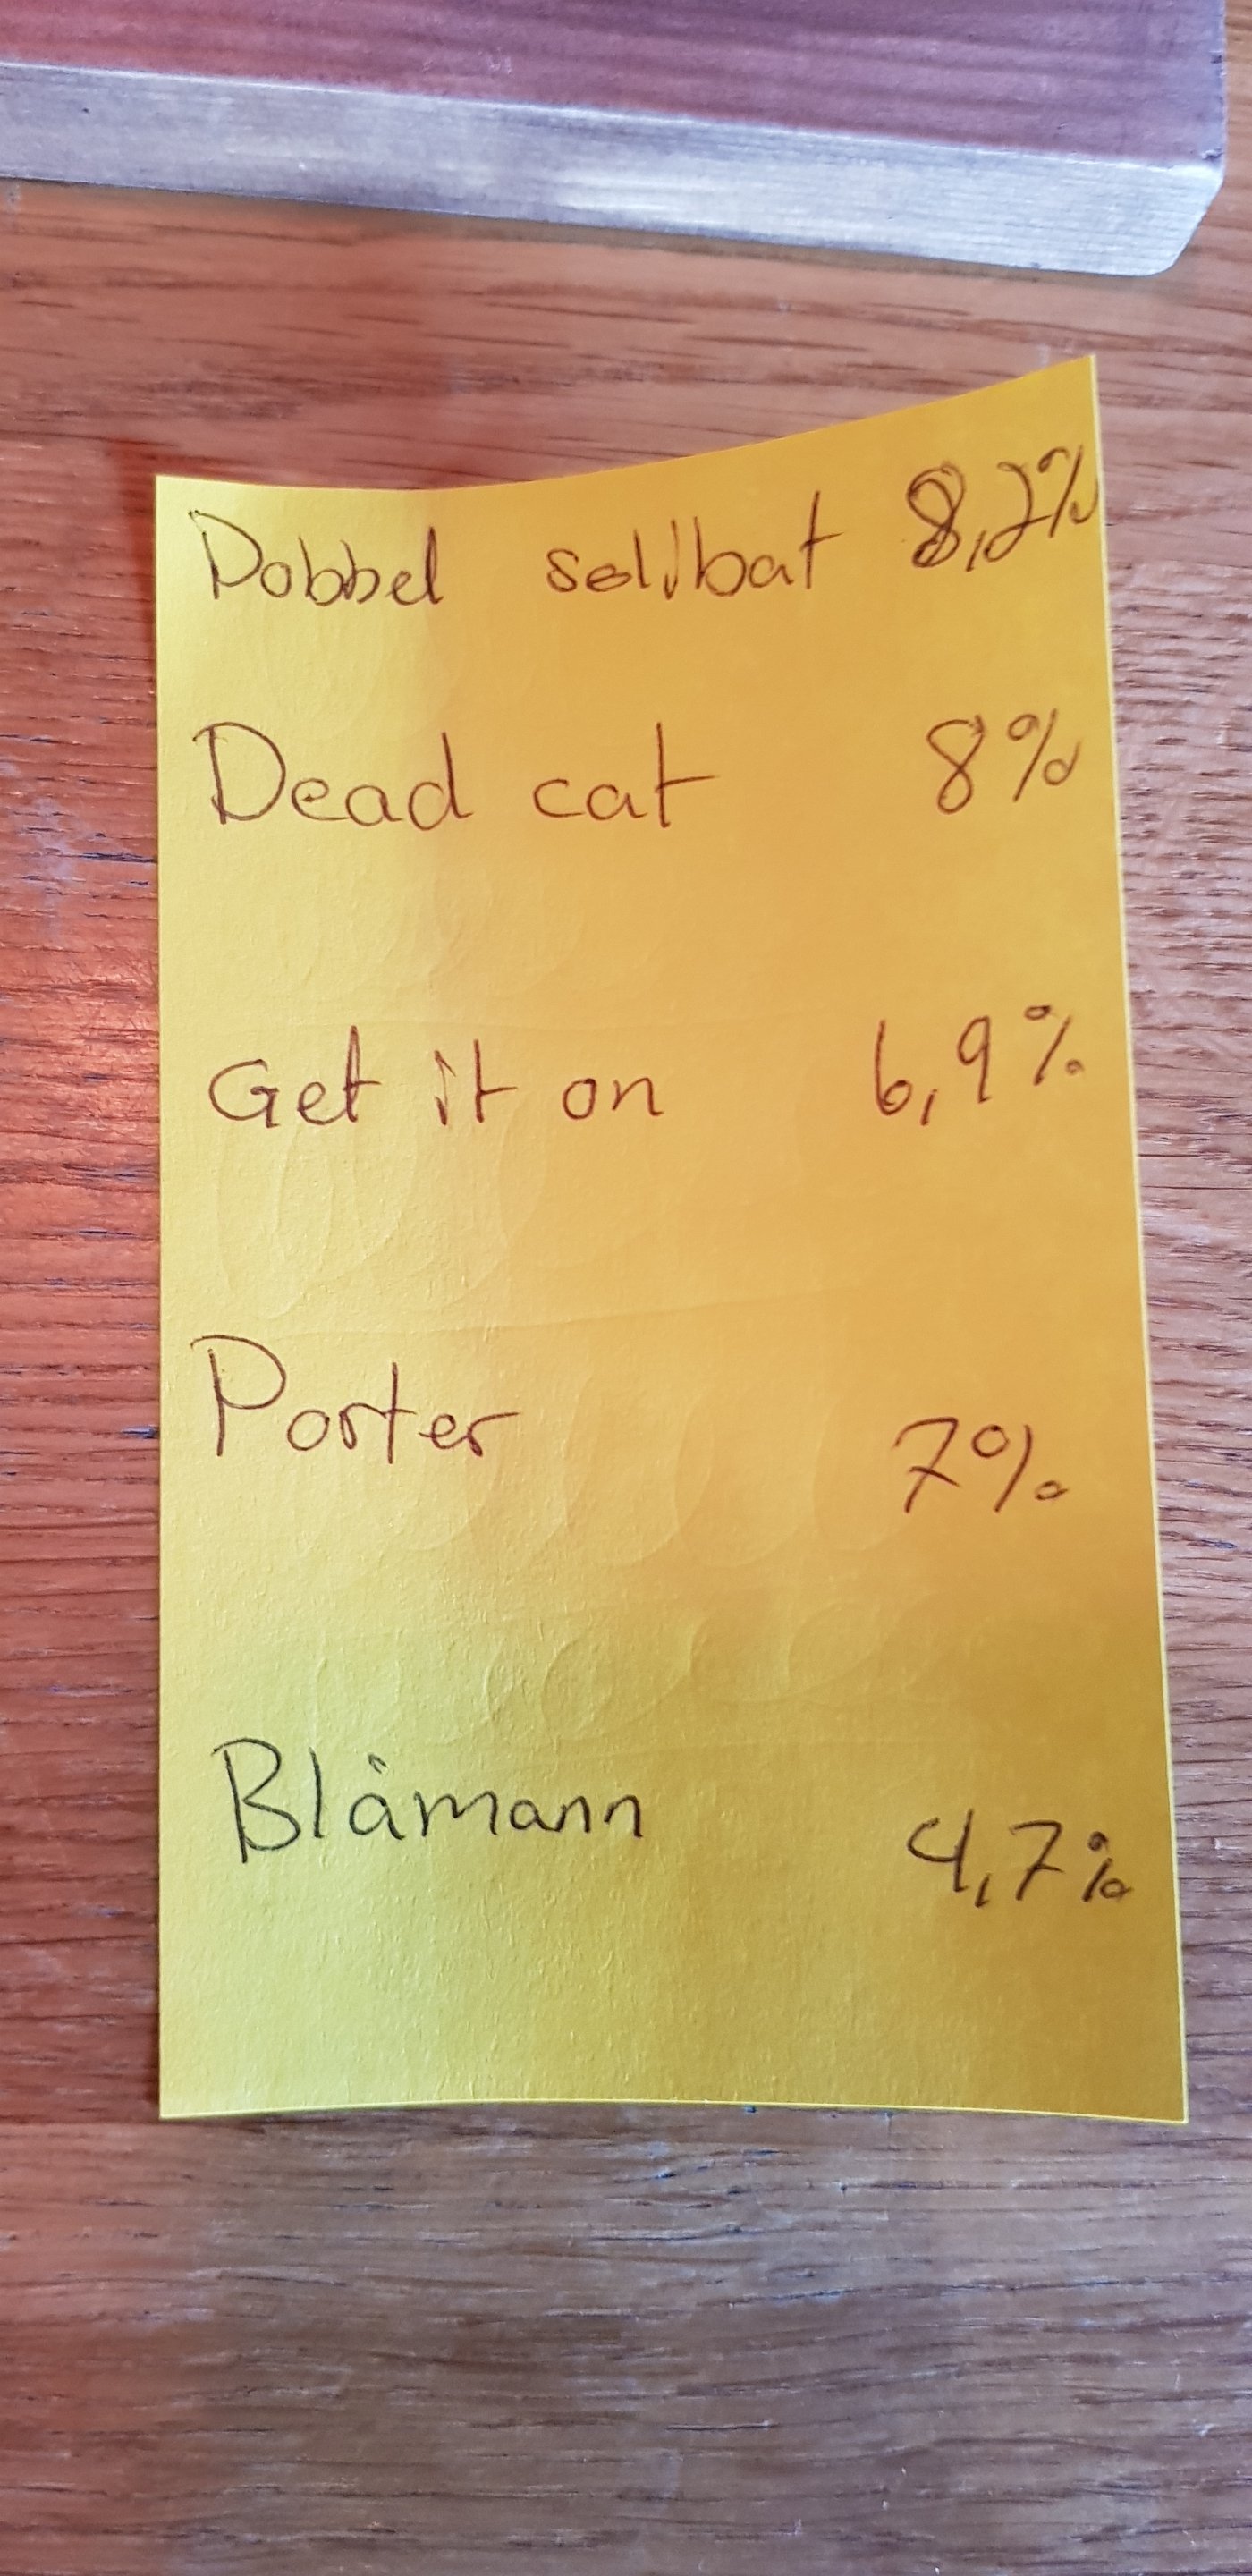 Dobbel sølibat 8,2%
Dead cat 8%
Get it on 6,9%
Porter 7%
Blåmann 4,7%